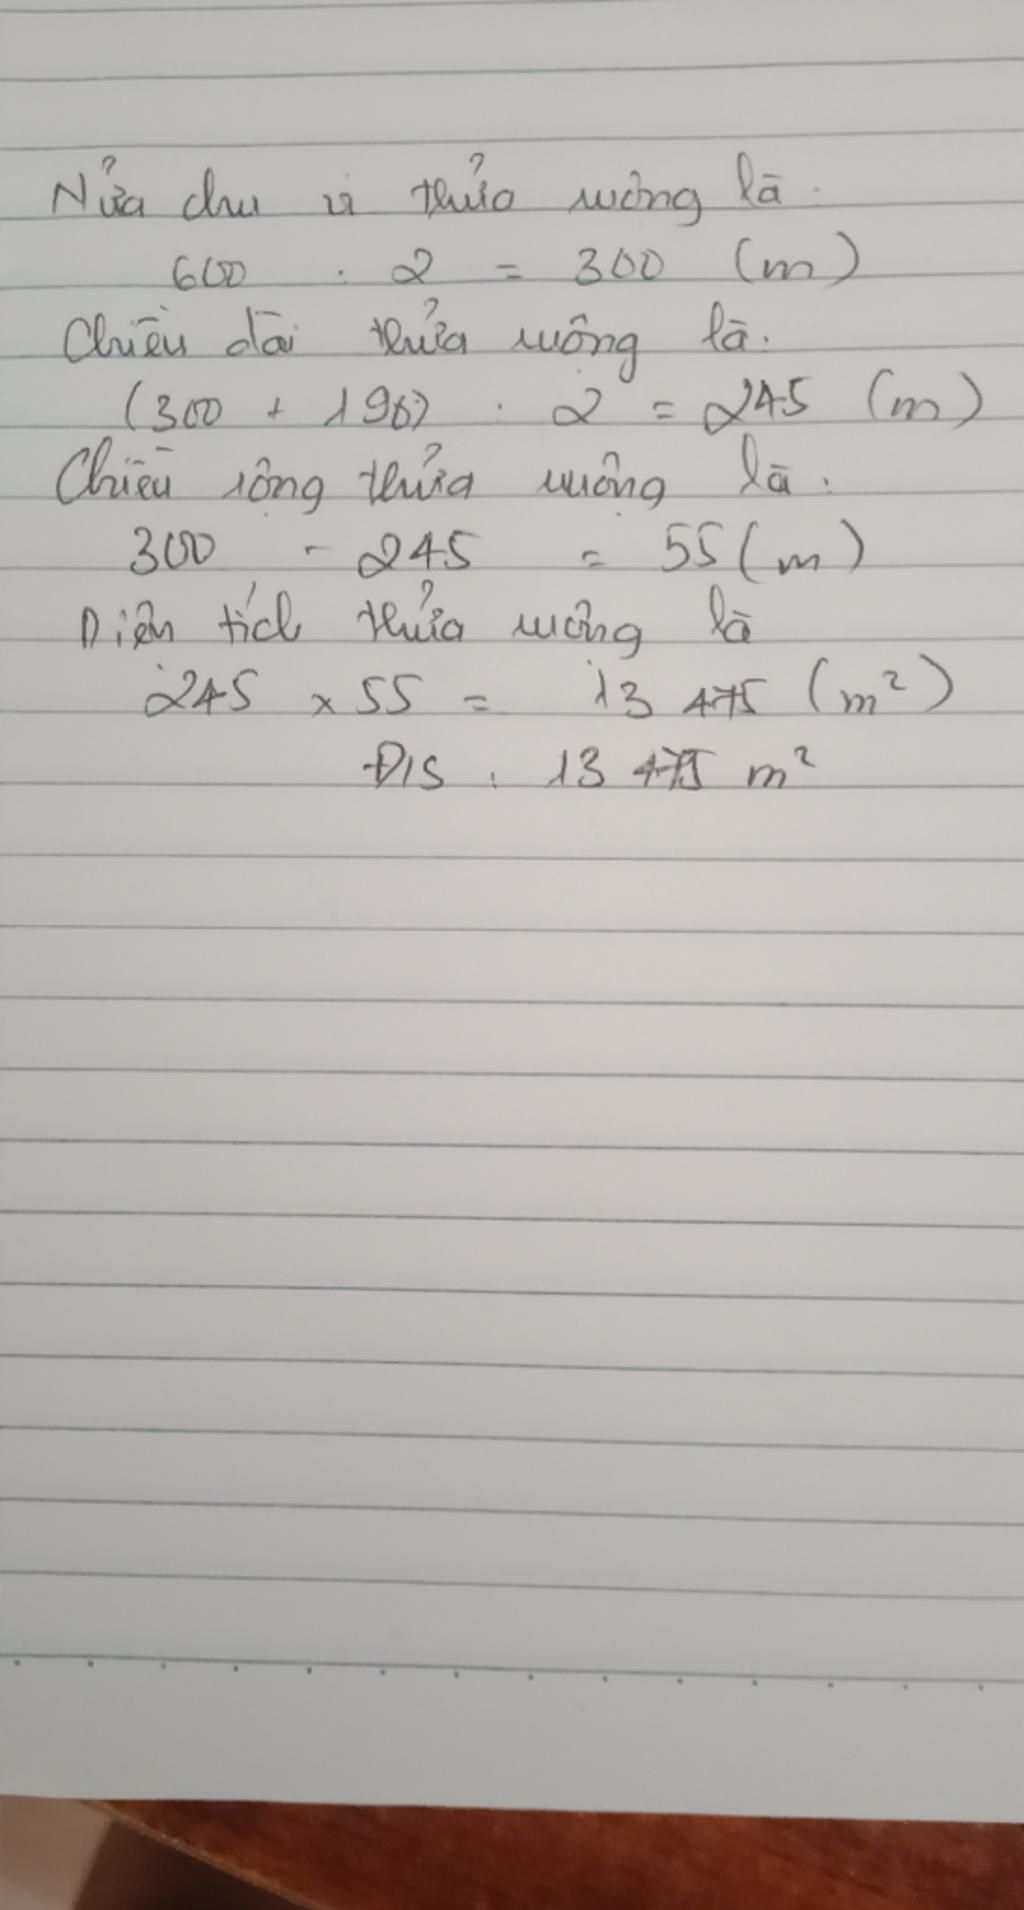 Nửa chu vi thửa ruộng là:
600 : 2 = 300 (m)
Chiều dài thửa ruộng là:
(300 + 190) : 2 = 245 (m)
Chiều rộng thửa ruộng là:
300 - 245 = 55 (m)
Diện tích thửa ruộng là
245 x 55 = 13 475 (m²)
Đ/S : 13 475 m²